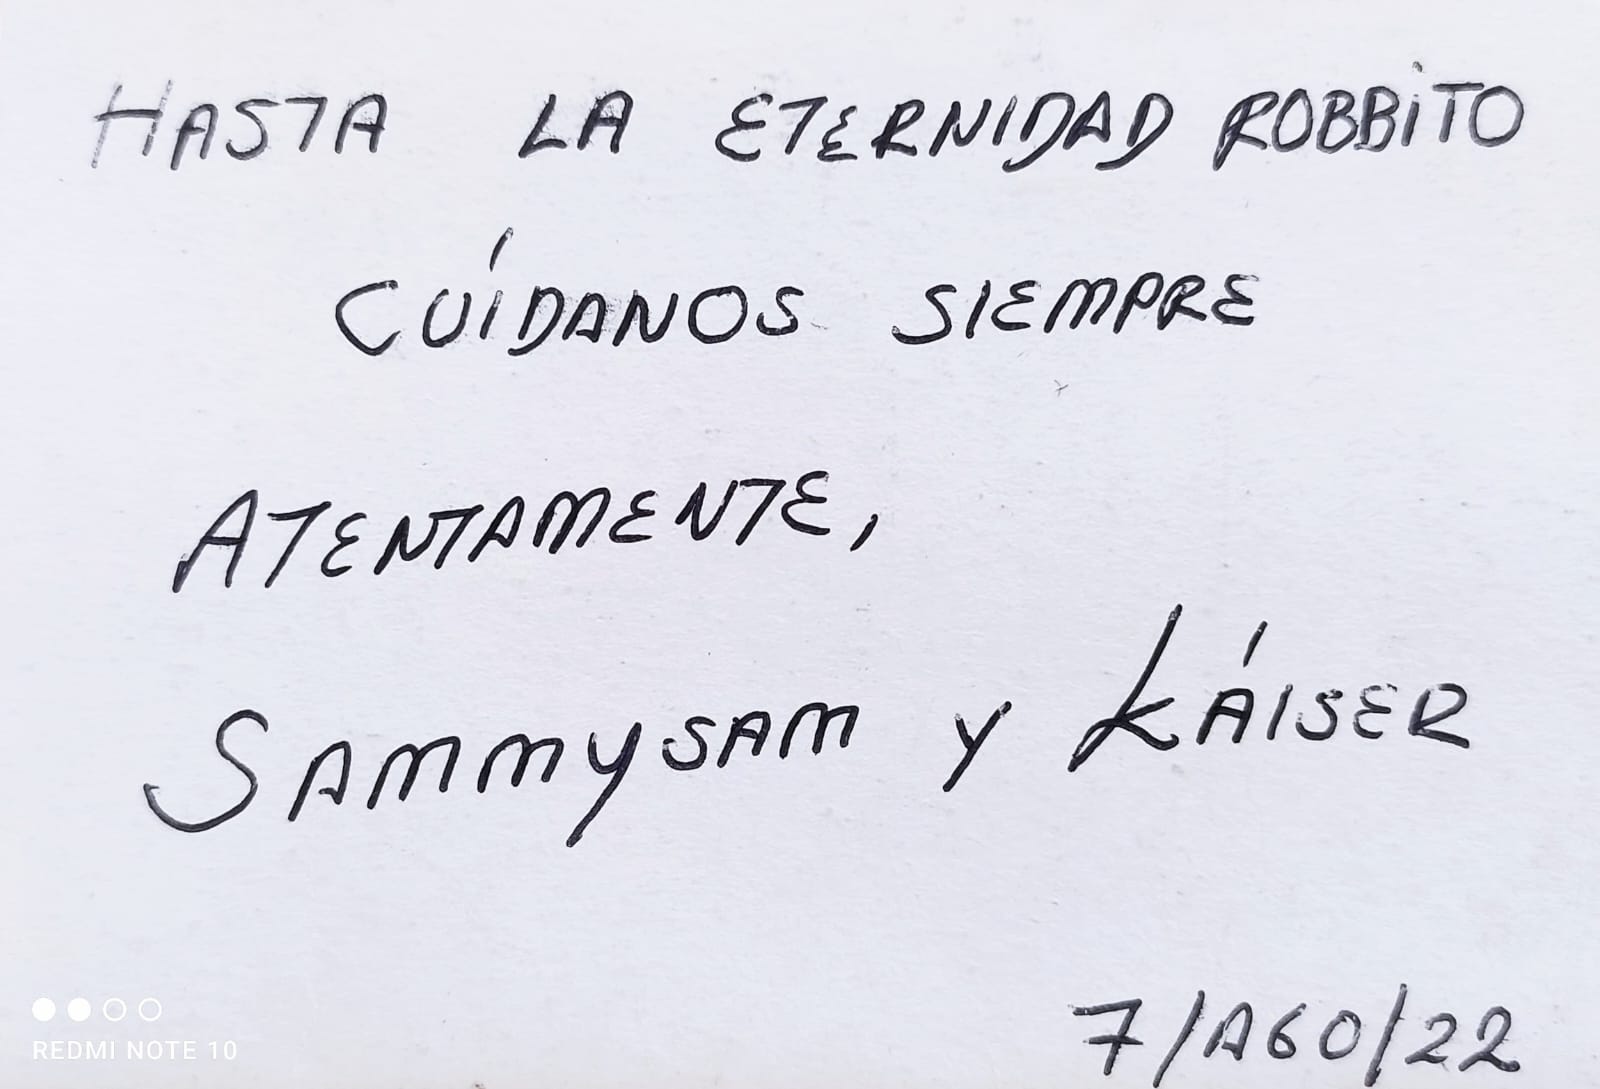 HASTA LA ETERNIDAD ROBBiTO
CUÍDANOS SIEMPRE
ATENTAMENTE,
SAMMYSAM Y KÁISER
7/AGO/22
REDMI NOTE 10